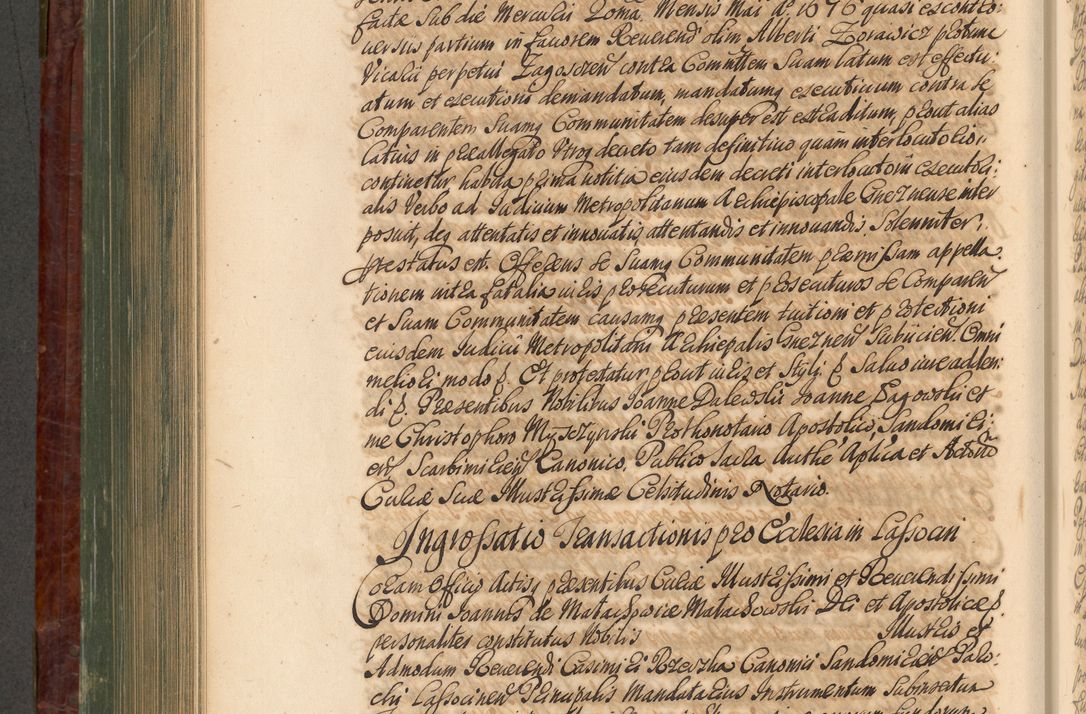 factæ Sub die Mercurii 20ma Mensis Maii Ao 1676 quasi ex contro-
versiis partium in favorem Reverendi olim Alberti Zorawicz plebani
Vicarii perpetui Zagoscien contra Committem Suam latum est effectu-
atum et executioni demandatum, mandatumq executivum contra Se
Comparentem Suamq Communitatem desuper est extraditum, prout alias
latius in præallegato Utroq decreto tam definitivo quam interlocutorio,
continetur, habita prima notitia eiusdem decreti interlocutorii executori-
alis Verbo ad Iudicium Metropolitanum Archiepiscopale Gneznense inter
posuit, deq attentatis et innovatis attentandis et innovandis, Solenniter,
protestatus est. Offerens Se Suamq Communitatem præmissam appella-
tionem intra fatalia iuris prosecuturum et prosecuturos Se Comparen
et Suam Communitatem causamq præsentem tuitioni et protectioni
eiusdem Iudicii Metropolitani Archiepalis Gneznen Subiicien. Omni
meliori modo p. Et protestatur prout iuris et Styli p Salvo iure adden-
di p. Præsentibus Nobilibus Ioanne Dalewski Ioanne Pagowski et
me Christophoro Myszczynski Prothonotario Apostolico, Sandomiri-
en Scarbimirien Canonico, Publico Sacra Authe Aplica et Actorum
Curiæ Suæ Illustrissimæ Celsitudinis Notario.
Ingrossatio Transactionis pro Ecclesia in Lassocin
Coram Officio Actisq præsentibus Curiæ Illustrissimi et Reverendissimi
Domini Ioannis de Małachowice Małachowski Dei et Apostolicæ p.
personaliter constitutus Nobilis Illustris et
Admodum Reverendi Casimiri Rzewska Canonici Sandomirien Paro-
chi Lassocinen Principalis Mandatarius Instrumentum Subinsertum